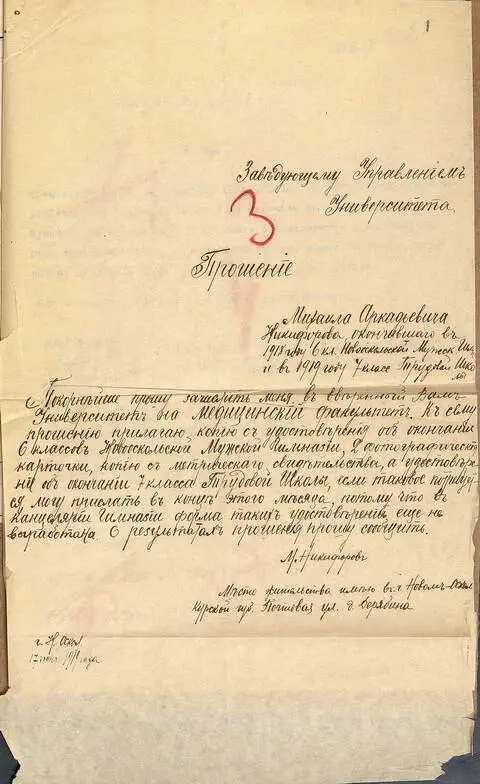 1
Завѣдующему Управленіемъ
Университета.
3
Прошеніе
Михаила Аркадьевича
Никифорова, окончившаго въ
1918 году 6 кл. Новооскольской Мужск.
и въ 1919 году 7 класс Трудовой Школы
Покорнѣйше прошу зачислить меня въ ввѣренный Вамъ
Университетъ на Медицинскій факультетъ. Къ сему
прошенію прилагаю, копію съ удостовѣренія объ окончаніи
6 классовъ Новооскольской Мужской Гимназіи, 2 фотографическія
карточки, копію съ метрическаго свидѣтельства, а удостовѣре-
ніе объ окончаніи 7 класса Трудовой Школы, если таковое
ся могу прислать въ концѣ этого мѣсяца, потому что въ
канцеляріи Гимназіи форма такихъ удостовѣреній еще не
выработана. О результатахъ прошенія прошу сообщить.
М. Никифоровъ
Мѣсто жительства имѣю въ г. Новомъ-Оскол
Курской губ. Почтовая ул. д.
г. Н. Оскол
17 1919 года